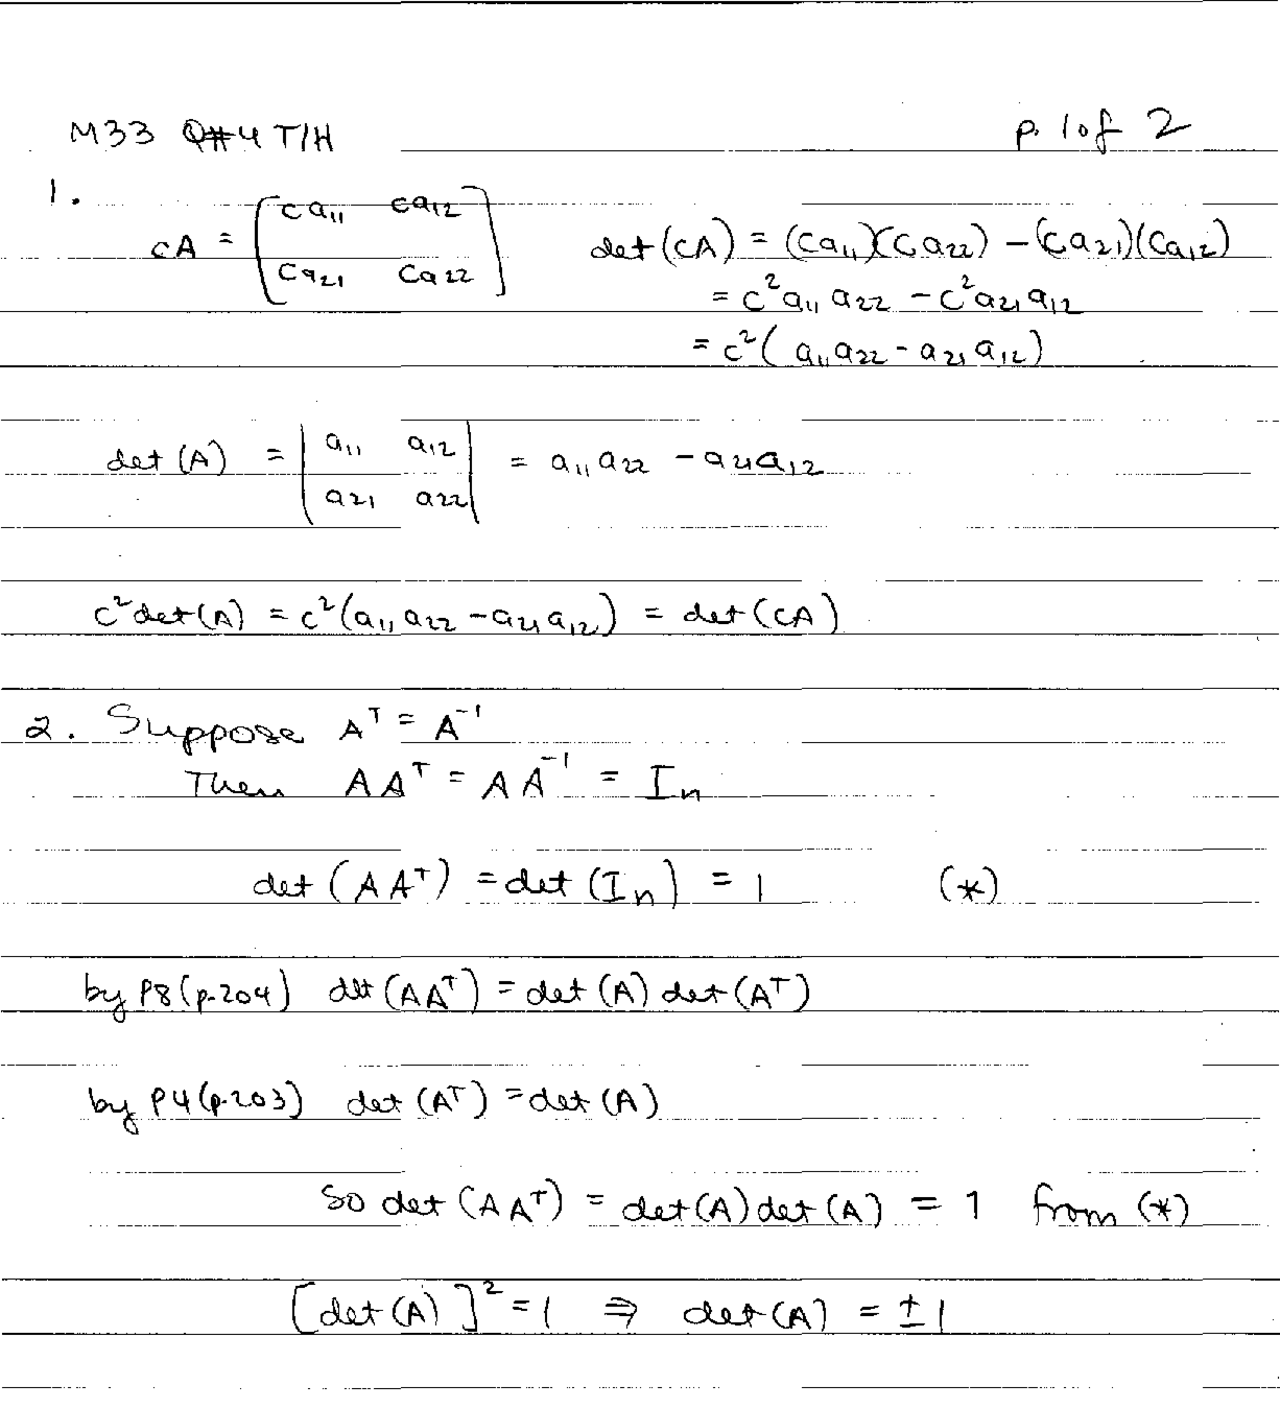 M33 Q#4 T/H p. 1 of 2
1.
cA = [ca₁₁ ca₁₂ det(cA) = (ca₁₁)(ca₂₂) - (ca₂₁)(ca₁₂)
ca₂₁ ca₂₂] = c²a₁₁a₂₂ - c²a₂₁a₁₂
= c²(a₁₁a₂₂ - a₂₁a₁₂)
det(A) = |a₁₁ a₁₂ = a₁₁a₂₂ - a₂₁a₁₂
a₂₁ a₂₂|
c²det(A) = c²(a₁₁a₂₂ - a₂₁a₁₂) = det(cA)
2. Suppose Aᵀ = A⁻¹
Then AAᵀ = AA⁻¹ = Iₙ
det(AAᵀ) = det(Iₙ) = 1 (*)
by P8(p.204) det(AAᵀ) = det(A)det(Aᵀ)
by P4(p.203) det(Aᵀ) = det(A)
So det(AAᵀ) = det(A)det(A) = 1 from (*)
[det(A)]² = 1 ⇒ det(A) = ±1